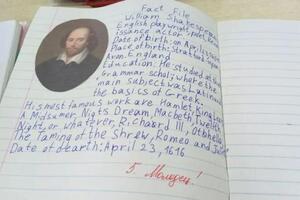 Fact File
William Shakespeare
English playwright, poet
issance actor
Date of birth: on April
Place of birth: Stratford
Avon. England
Education: He studied at the
Grammar school; where the
main subject was Latin and
the basics of Greek.
His most famous work are Hamlet, King
A Midsumer Nigts Dream, Macbeth, Twelfth
Night, or whatever, Richard III, Othello
The Taming of the Shrew, Romeo and
Date of dearth: April 23, 1616
5 Молодец!